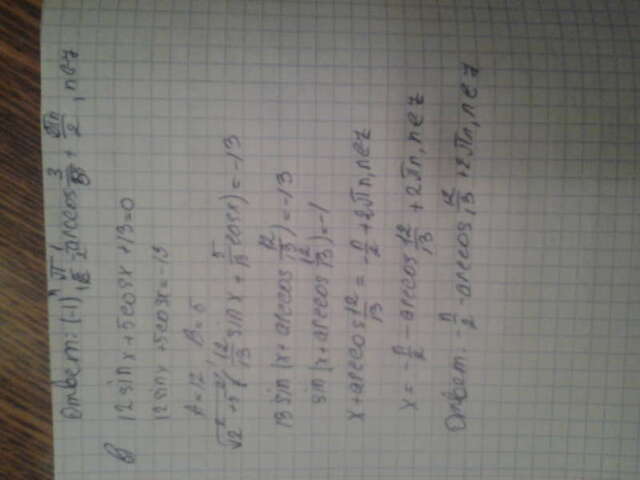 Ответ: (-1)ⁿ π/12 - 1/2 arccos 3/5 + πn/2, n∈z
в) 12 sin x + 5 cos x + 13 = 0
12 sin x + 5 cos x = -13
A = 12 B = 5
√12² + 5² (12/13 sin x + 5/13 cos x) = -13
13 sin (x + arccos 12/13) = -13
sin (x + arccos 12/13) = -1
x + arccos 12/13 = -π/2 + 2πn, n∈z
x = -π/2 - arccos 12/13 + 2πn, n∈z
Ответ: -π/2 - arccos 12/13 + 2πn, n∈z